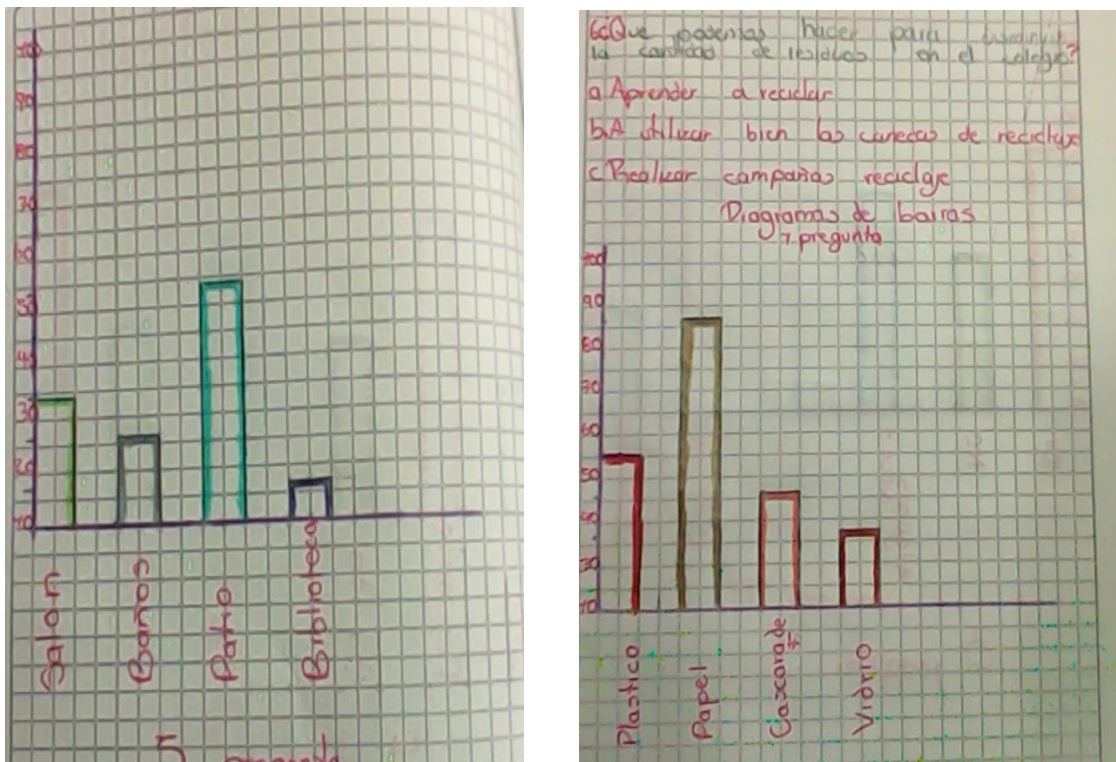 100
90
80
70
60
50
40
30
20
10
Salon
Baños
Patio
Biblioteca
5
6¿Que podemos hacer para
la cantidad de residuos en el colegio?
a Aprender a reciclar
b.A utilizar bien las canecas de reciclaje
c Realizar campañas reciclaje
Diagramas de barras
1 pregunta
100
90
80
70
60
50
40
30
10
Plastico
Papel
Cascara de
Vidrio